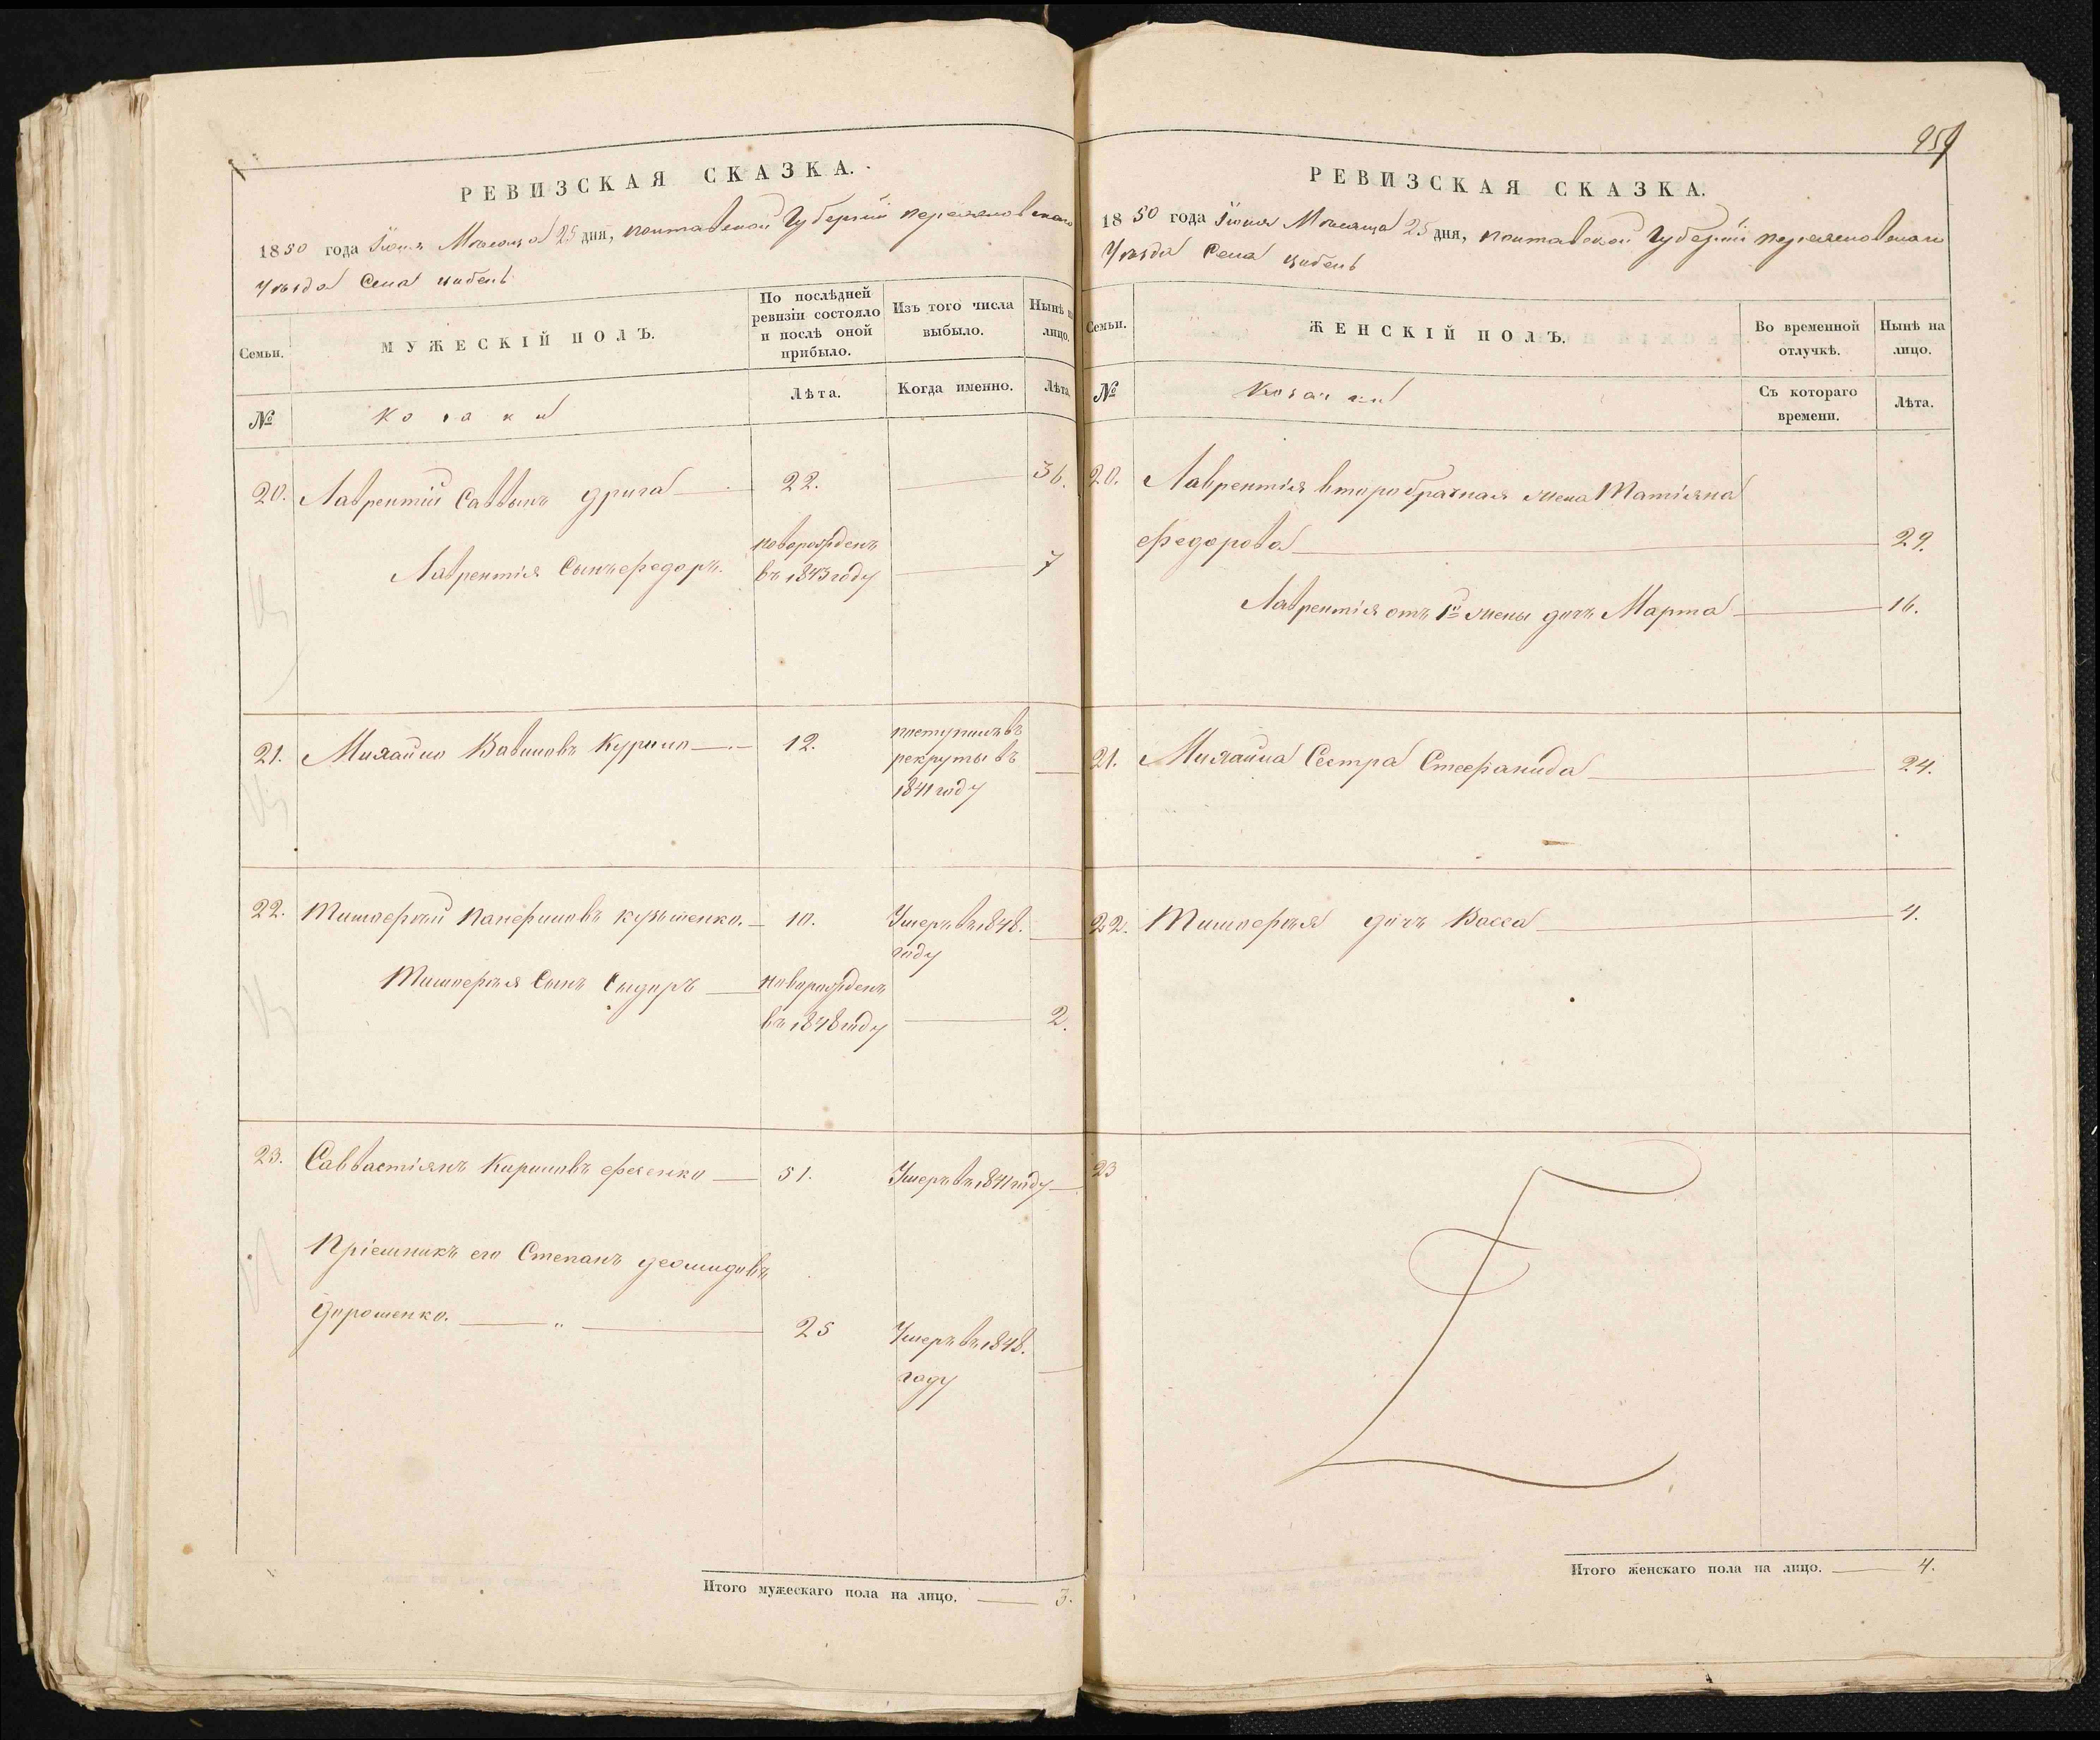 РЕВИЗСКАЯ СКАЗКА.
1850 года Іюня Мѣсяца 25 дня, полтавской Губерніи переяловскаго
Уѣзда Села цибель
Семьи.
МУЖЕСКІЙ ПОЛЪ.
По послѣдней ревизіи состояло и послѣ оной прибыло.
Изъ того числа выбыло.
Нынѣ на лицо.
№
Козаки
Лѣта.
Когда именно.
Лѣта.
20. Лаврентій Саввинъ дрига 22. 36.
Лаврентія Сынъ федоръ. новорожденъ
въ 1843 году 7
21. Михайло Вавиловъ Курило 12. поступилъ въ
рекруты въ
1841 году
22. Тимофѣй Панфиловъ кузьменко. 10. Умеръ въ 1848.
году
Тимофѣя Сынъ Сидоръ новорожденъ
въ 1848 году 2.
23. Саввастіянъ Кариловъ фесенко 51. Умеръ въ 1841 году
Пріемникъ его Степанъ деомидовъ
Дорошенко. 25 Умеръ въ 1848.
году
Итого мужескаго пола на лицо. 3.
959
РЕВИЗСКАЯ СКАЗКА.
1850 года Іюня Мѣсяца 25 дня, полтавской Губерніи переяловскаго
Уѣзда Села цибель
Семьи.
ЖЕНСКІЙ ПОЛЪ.
Во временной отлучкѣ.
Нынѣ на лицо.
№
Козачки
Съ котораго времени.
Лѣта.
20. Лаврентія второбрачная жена Матіяна
федорова 29.
Лаврентія отъ 1й жены дочь Марта 16.
21. Михайла Сестра Стефанида 24.
22. Тимофѣя дочь Васса 4.
23
Итого женскаго пола на лицо. 4.